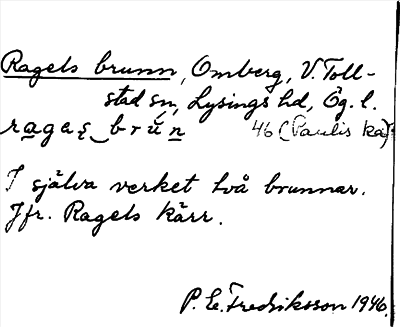 Ragels brunn, Omberg, V. Toll-
stad sn, Lysings hd, Ög. l.
ragaʂ brún 46 (Paulis ka)
I själva verket två brunnar.
Jfr. Ragels kärr.
P. E. Fredriksson 1946.